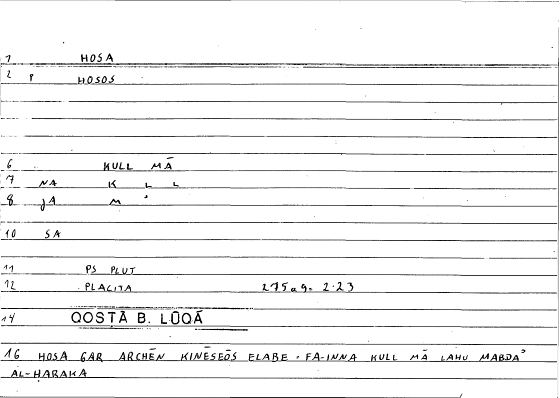 1 HOSA
2 P HOSOS
6 KULL MĀ
7 NA K L L
8 JA M ʾ
10 SA
11 PS PLUT
12 PLACITA 275a9. 2.23
14 QOSṬĀ B. LŪQĀ
16 HOSA GAR ARCHĒN KINĒSEŌS ELABE. FA-INNA KULL MĀ LAHU MABDAʾ
AL-ḤARAKA